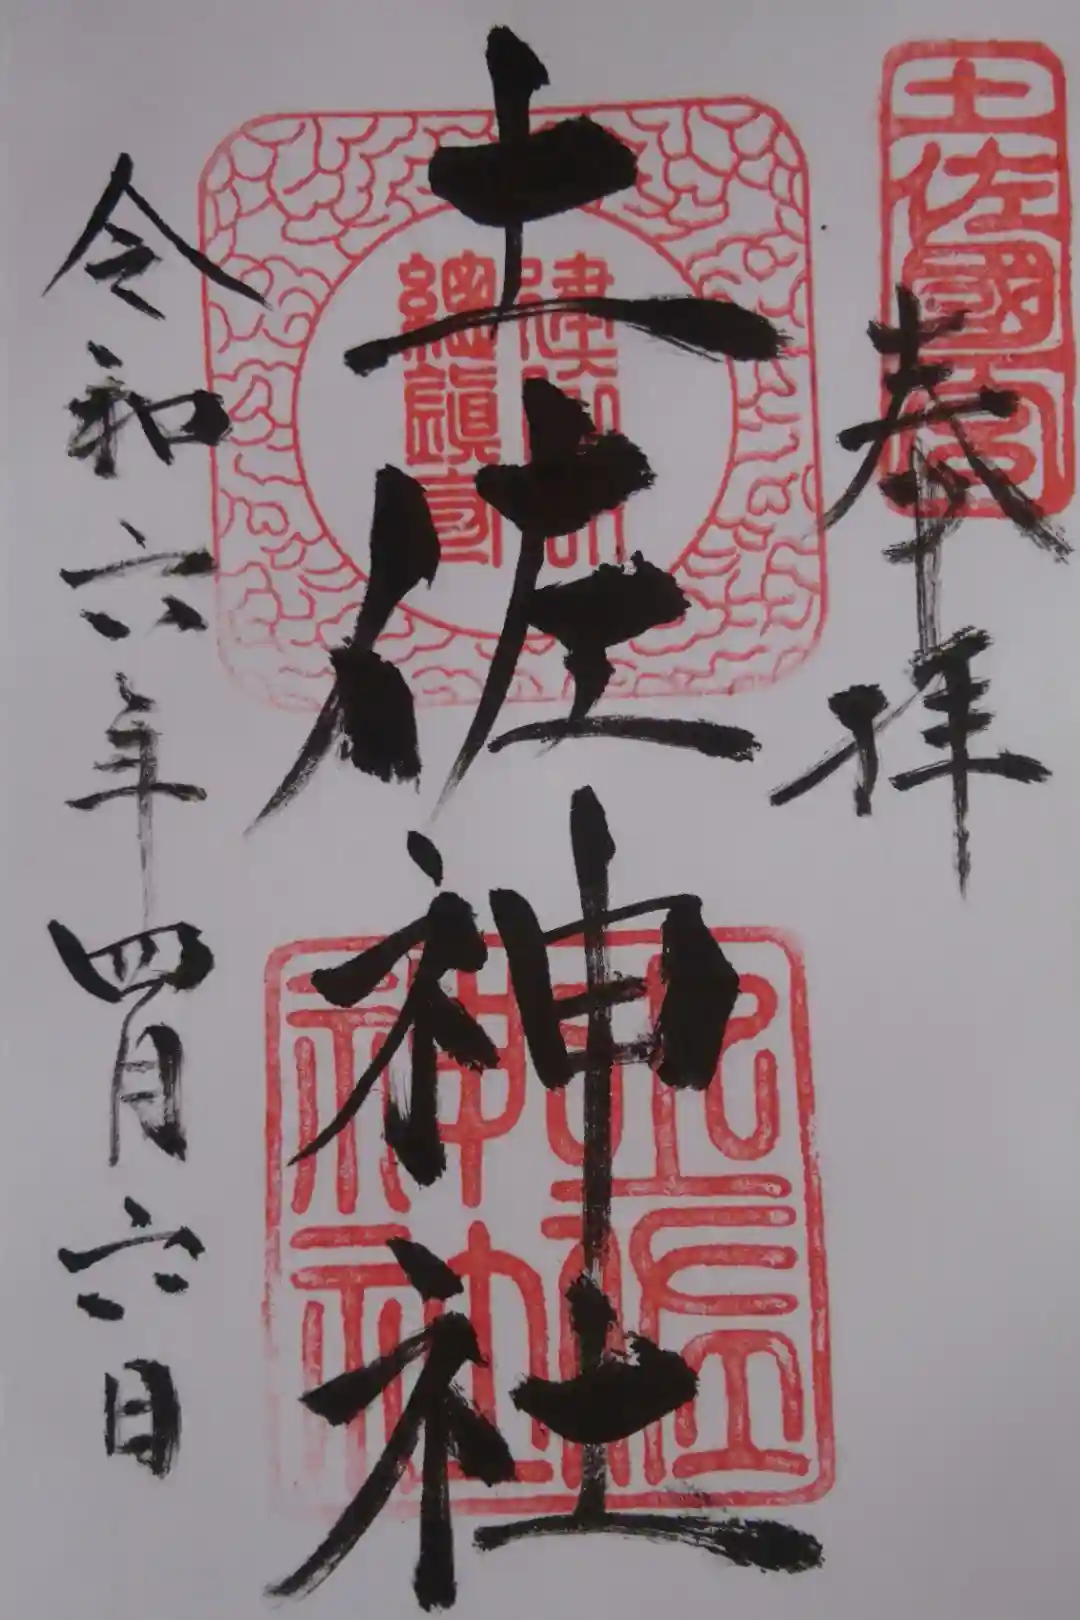 土佐國一宮
奉拝
建依別
總鎮守
土佐神社
土佐
神社
令和六年四月六日